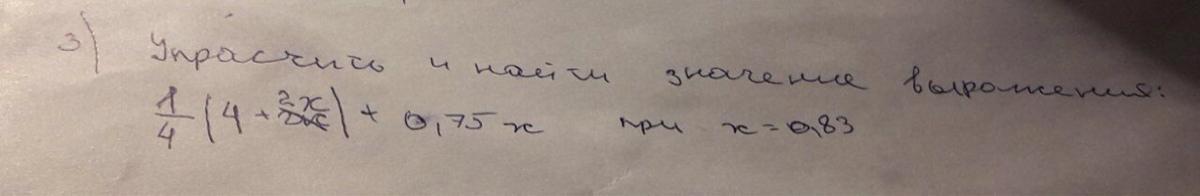 3) Упрасчить и найти значение выражения:
1/4 (4 + 2x) + 0,75x при x = 0,83